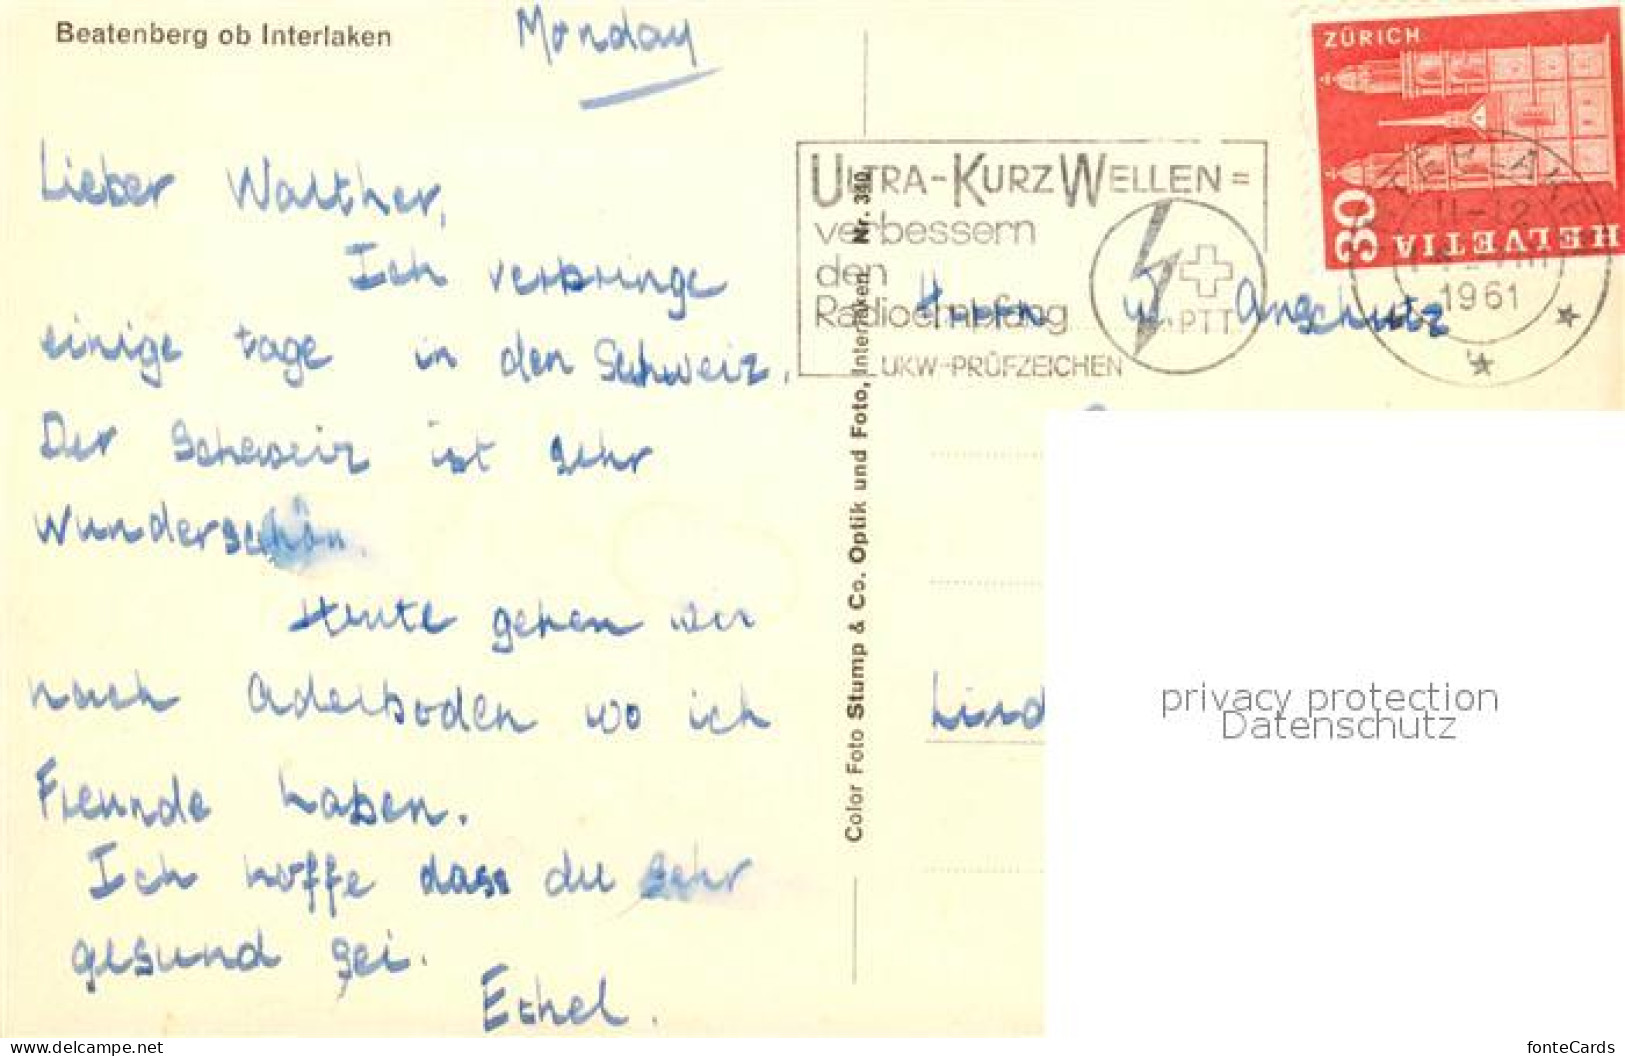 Beatenberg ob Interlaken
Monday
Lieber Walther,
Ich verbringe
einige tage in den Schweiz.
Der Schweiz ist sehr
wunderschön.
Heute gehen wir
nach Adelboden wo ich
Freunde haben.
Ich hoffe dass du sehr
gesund sei.
Ethel.
Color Foto Stump & Co. Optik und Foto, Interlaken Nr. 340
ULTRA-KURZWELLEN=
verbessern
den
Radioempfang
UKW-PRÜFZEICHEN
PTT
ZÜRICH
30
HELVETIA
INTERLAKEN
11-12
1961
Herrn W. Anschutz
Lind
privacy protection
Datenschutz
www.delcampe.net
fonteCards